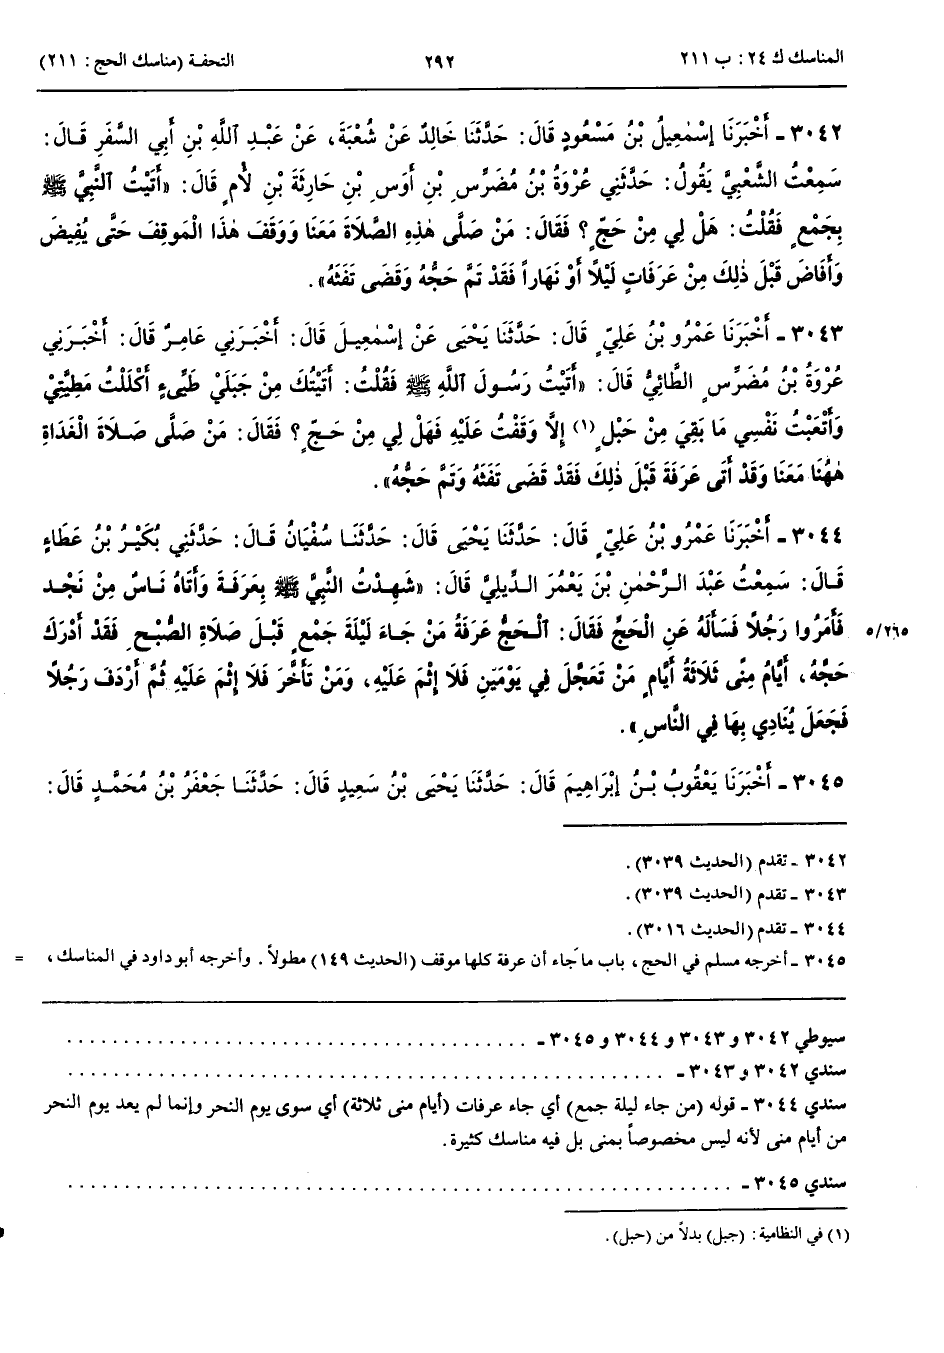 المناسك ك ٢٤: ب ٢١١ ٢٩٢ التحفة (مناسك الحج: ٢١١)
٣٠٤٢ ـ أَخْبَرَنَا إِسْمٰعِيلُ بْنُ مَسْعُودٍ قَالَ: حَدَّثَنَا خَالِدٌ عَنْ شُعْبَةَ، عَنْ عَبْدِ ٱللَّهِ بْنِ أَبِي السَّفَرِ قَـالَ:
سَمِعْتُ الشَّعْبِيَّ يَقُولُ: حَدَّثَنِي عُرْوَةُ بْنُ مُضَرِّسِ بْنِ أَوْسِ بْنِ حَارِثَةَ بْنِ لأْمٍ قَالَ: «أَتَيْتُ ٱلنَّبِيَّ ﷺ
بِجَمْعٍ فَقُلْتُ: هَلْ لِي مِنْ حَجٍّ؟ فَقَالَ: مَنْ صَلَّى هٰذِهِ الصَّلَاةَ مَعَنَا وَوَقَفَ هٰذَا الْمَوقِفَ حَتَّى يُفِيضَ
وَأَفَاضَ قَبْلَ ذٰلِكَ مِنْ عَرَفَاتٍ لَيْلًا أَوْ نَهَاراً فَقَدْ تَمَّ حَجُّهُ وَقَضَى تَفَثَهُ».
٣٠٤٣ ـ أَخْبَرَنَا عَمْرُو بْنُ عَلِيٍّ قَالَ: حَدَّثَنَا يَحْيَى عَنْ إِسْمٰعِيـلَ قَالَ: أَخْبَـرَنِي عَامِرٌ قَالَ: أَخْبَـرَنِي
عُرْوَةُ بْنُ مُضَرِّسٍ الطَّائِيُّ قَالَ: «أَتَيْتُ رَسُـولَ ٱللَّهِ ﷺ فَقُلْتُ: أَتَيْتُكَ مِنْ جَبَلَيْ طَيِّىءٍ أَكْلَلْتُ مَطِيَّتِيْ
وَأَتْعَبْتُ نَفْسِي مَا بَقِيَ مِنْ حَبْلٍ(١) إِلَّا وَقَفْتُ عَلَيْهِ فَهَلْ لِي مِنْ حَـجٍّ؟ فَقَالَ: مَنْ صَلَّى صَـلَاةَ الْغَدَاةِ
هٰهُنَا مَعَنَا وَقَدْ أَتَى عَرَفَةَ قَبْلَ ذٰلِكَ فَقَدْ قَضَى تَفَثَهُ وَتَمَّ حَجُّهُ».
٣٠٤٤ ـ أَخْبَرَنَا عَمْرُو بْنُ عَلِيٍّ قَالَ: حَدَّثَنَا يَحْيَى قَالَ: حَدَّثَنَـا سُفْيَانُ قَـالَ: حَدَّثَنِي بُكَيْـرُ بْنُ عَطَاءٍ
قَـالَ: سَمِعْتُ عَبْدَ الـرَّحْمٰنِ بْنَ يَعْمُرَ الـدِّيلِيَّ قَالَ: «شَهِدْتُ النَّبِيَّ ﷺ بِعَرَفَةَ وَأَتَاهُ نَاسٌ مِنْ نَجْـد
فَأَمَرُوا رَجُلًا فَسَأَلَهُ عَنِ الْحَجِّ فَقَالَ: ٱلْـحَجُّ عَرَفَةُ مَنْ جَاءَ لَيْلَةَ جَمْعٍ قَبْـلَ صَلَاةِ الصُّبْحِ فَقَدْ أَدْرَكَ ٥/٢٦٥
حَجَّهُ، أَيَّامُ مِنًى ثَلَاثَةُ أَيَّامٍ مَنْ تَعَجَّلَ فِي يَوْمَيْنِ فَلَا إِثْمَ عَلَيْهِ، وَمَنْ تَأَخَّرَ فَلَا إِثْمَ عَلَيْهِ ثُمَّ أَرْدَفَ رَجُلًا
فَجَعَلَ يُنَادِي بِهَا فِي النَّاسِ».
٣٠٤٥ ـ أَخْبَرَنَا يَعْقُوبُ بْـنُ إِبْرَاهِيمَ قَالَ: حَدَّثَنَا يَحْيَى بْنُ سَعِيدٍ قَالَ: حَدَّثَنَـا جَعْفَرُ بْنُ مُحَمَّـدٍ قَالَ:
٣٠٤٢ ـ تقدم (الحديث ٣٠٣٩).
٣٠٤٣ ـ تقدم (الحديث ٣٠٣٩).
٣٠٤٤ ـ تقدم (الحديث ٣٠١٦).
٣٠٤٥ ـ أخرجه مسلم في الحج، باب ما جاء أن عرفة كلها موقف (الحديث ١٤٩) مطولاً. وأخرجه أبو داود في المناسك، =
سيوطي ٣٠٤٢ و ٣٠٤٣ و ٣٠٤٤ و ٣٠٤٥ ـ . . . . . . . . . . . . . . . . . . . . . . . . . . . . . .
سندي ٣٠٤٢ و ٣٠٤٣ ـ . . . . . . . . . . . . . . . . . . . . . . . . . . . . . . . . . . . . . .
سندي ٣٠٤٤ ـ قوله (من جاء ليلة جمع) أي جاء عرفات (أيام منى ثلاثة) أي سوى يوم النحر وإنما لم يعد يوم النحر
من أيام منى لأنه ليس مخصوصاً بمنى بل فيه مناسك كثيرة.
سندي ٣٠٤٥ ـ . . . . . . . . . . . . . . . . . . . . . . . . . . . . . . . . . . . . . . . . . .
(١) في النظامية: (جبل) بدلاً من (حبل).